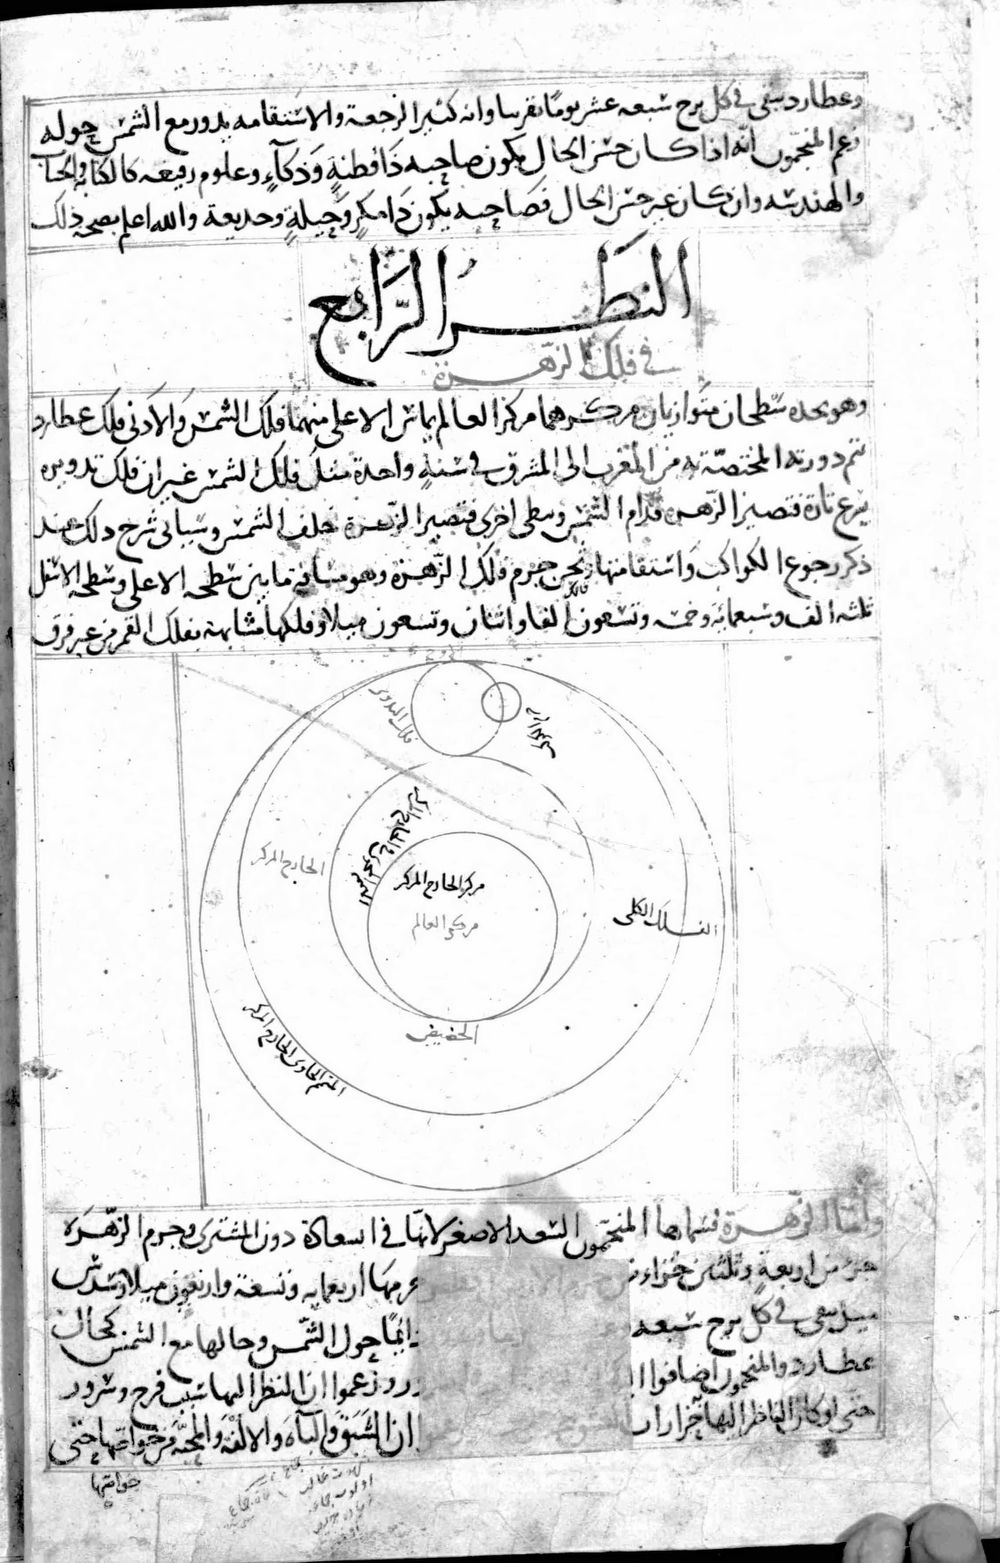 وعطارد يبقى في كل برج سبعه عشر يومًا تقريبا وانه كثير الرجعة والاستقامه يدور مع الشمس حوله
زعم المنجمون انه اذا كان حسن الحال يكون صاحبه ذا فطنةٍ وذكآءٍ وعلوم رفيعه كالكتابة والحساب
والهندسه وان كان غير حسن الحال فصاحبه يكون ذا مكرٍ وحيلةٍ وخديعة والله اعلم بصحة ذلك
النظر الرابع
في فلك الزهرة
وهو يحده سطحان متوازيان مركزهما مركز العالم يماس الاعلى منهما فلك الشمس والادنى فلك عطارد
تتم دورته المختصة به من المغرب الى المشرق في سنةٍ واحدة مثل فلك الشمس غير ان فلك تدويره
يسرع تارة فتصير الزهرة قدام الشمس ويبطى اخرى فتصير الزهرة خلف الشمس وسياتى شرح ذلك عند
ذكر رجوع الكواكب واستقامتها وثخن جرم فلك الزهرة وهو مسافة ما بين سطحه الاعلى وسطحه الاسفل
ثلثه الف وسبعمايه وخمسه وتسعون الفا واثنان وتسعون ميلا وفلكها مشابهة بفلك القمر من غير فرق
الاوج
فلك التدوير
الخارج المركز
مركز الخارج المركز
مركز العالم
الفلك الكلى
الحضيض
المتمم الحاوى الخارج المركز
وأما الزهرة فسماها المنجمون السعد الاصغر لانها في السعادة دون المشترى وجرم الزهرة
جزء من اربعةٍ وثلثين جزاء من جرم الارض جرمها اربعمايه وتسعة واربعون ميلا وسدس
ميل يبقى في كل برج سبعه دائما حول الشمس وحالها مع الشمس كحال
عطارد والمنجمون اضافوا وزعموا ان النظر اليها سبب فرح وسرور
حتى لو كان الناظر اليها حرارات ان الشبق والباه والالفة والمحبة من خواصها حتى
خواصها